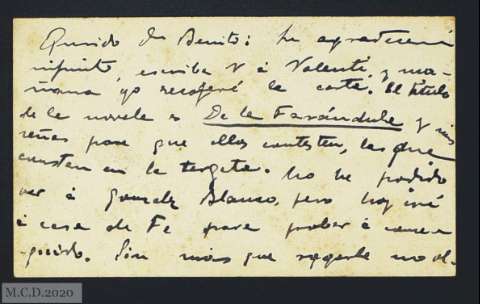 Querido Dn Benito: Le agradeceré
infinito, escriba V à Valentí, y ma-
ñana yo recogeré la carta. El título
de la novela es De la Farándula y mis
señas para que ellos contesten, las que
constan en la targeta. No he podido
ver à Gonzalez Blanco, pero hoy iré
à casa de Fe para probar à conse-
guirlo. Sin más que rogarle no ol-
M.C.D.2020